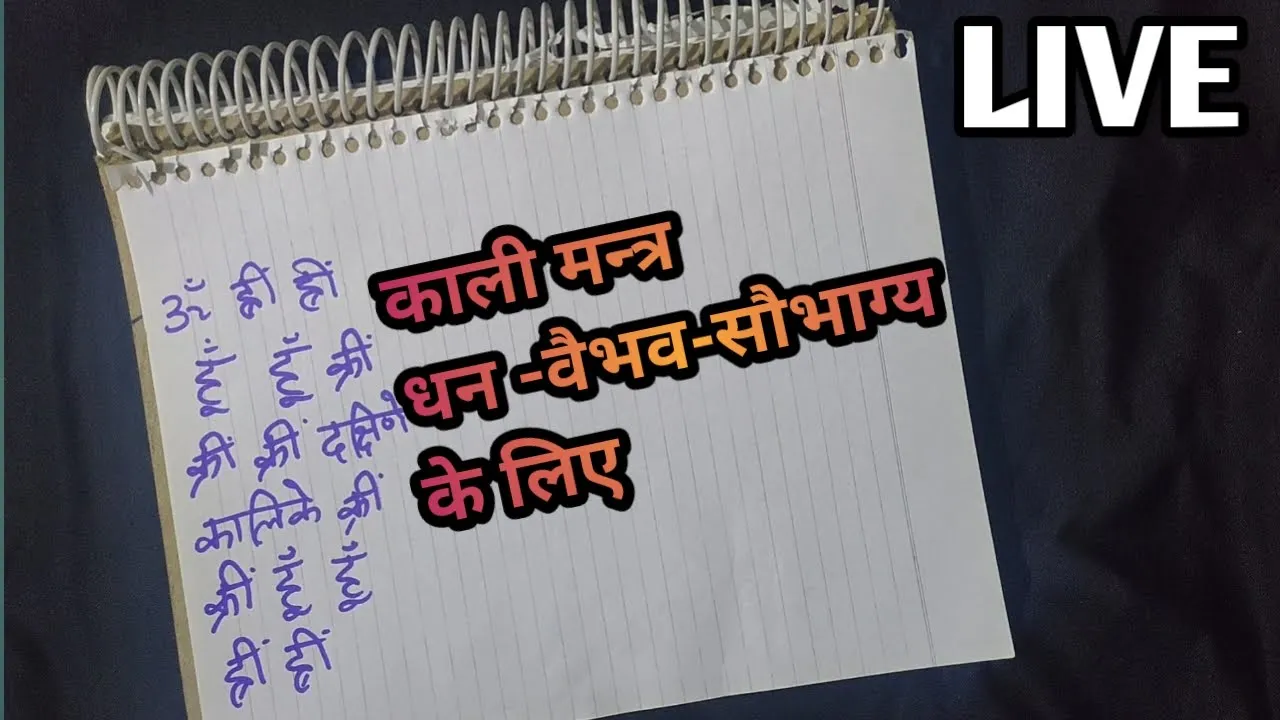 LIVE
ॐ क्रीं ह्रीं
हूँ हूँ क्रीं
क्रीं क्रीं दक्षिणे
कालिके क्रीं
क्रीं हूँ हूँ
ह्रीं ह्रीं
काली मन्त्र
धन -वैभव-सौभाग्य
के लिए